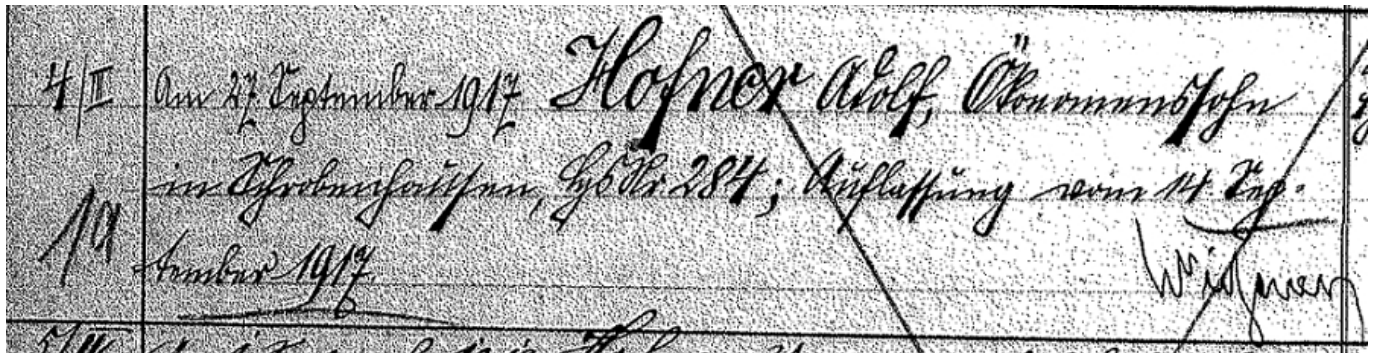 4/II Am 27. September 1917 Hofner Adolf, Ökonomenssohn
in Schrobenhausen, Hs Nr. 284; Auflassung vom 14. Sep-
1/a tember 1917.